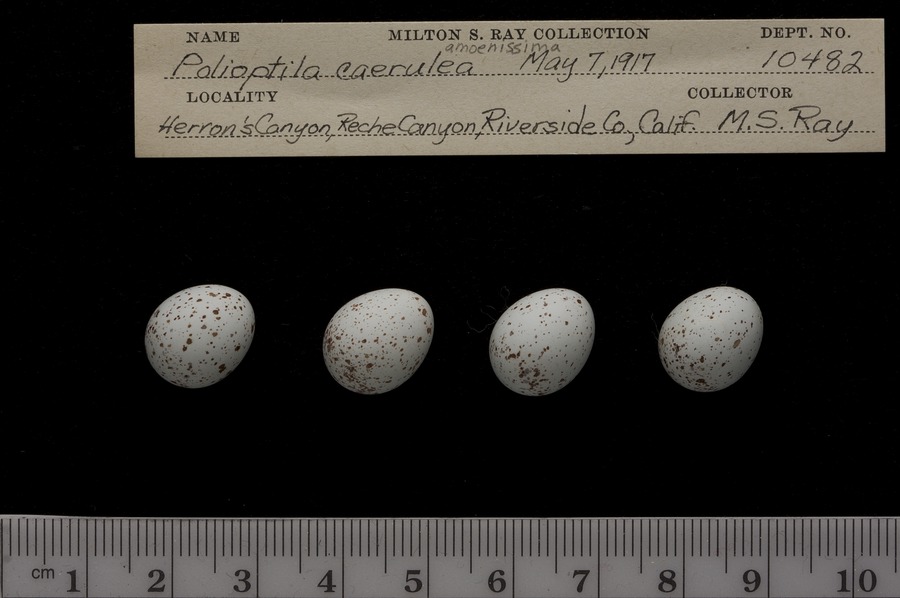 NAME MILTON S. RAY COLLECTION DEPT. NO.
amoenissima
Polioptila caerulea May 7, 1917 10482
LOCALITY COLLECTOR
Herron's Canyon, Reche Canyon, Riverside Co., Calif. M.S. Ray
cm 1 2 3 4 5 6 7 8 9 10